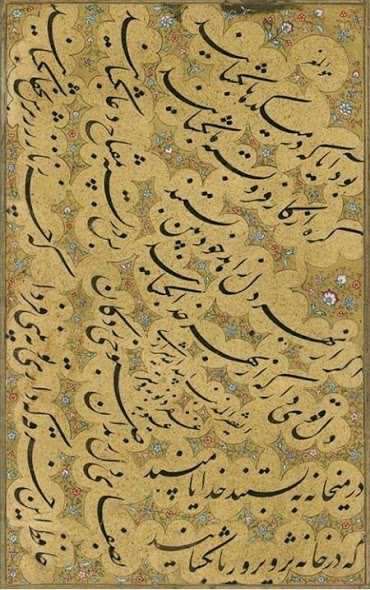 بود آیا که در میکده ها بگشایند
گره از کار فروبسته ما بگشایند
اگر از بهر دل زاهد خودبین بستند
دل قوی دار که از بهر خدا بگشایند
در میخانه ببستند خدایا مپسند
که در خانه تزویر و ریا بگشایند
بصفای دل رندان صبوحی زدگان
بس در بسته بمفتاح دعا بگشایند
حافظ این خرقه که داری تو ببینی فردا
که چه زنار ز زیرش بجفا بگشایند